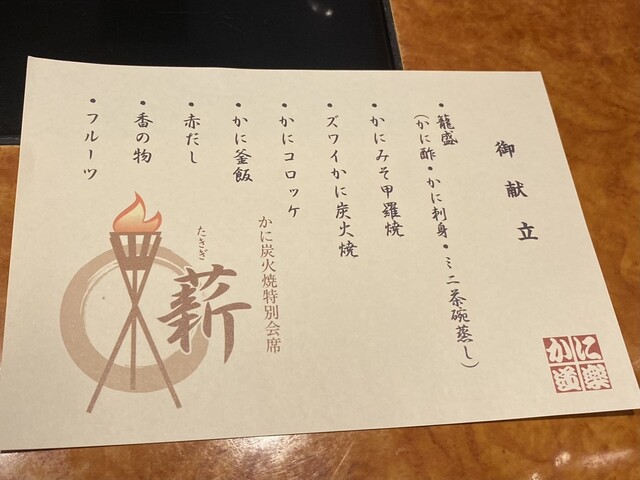 御献立
・籠盛
（かに酢・かに刺身・ミニ茶碗蒸し）
・かにみそ甲羅焼
・ズワイかに炭火焼
・かにコロッケ
・かに釜飯
・赤だし
・香の物
・フルーツ
かに炭火焼特別会席
たきぎ
薪
かに
道楽